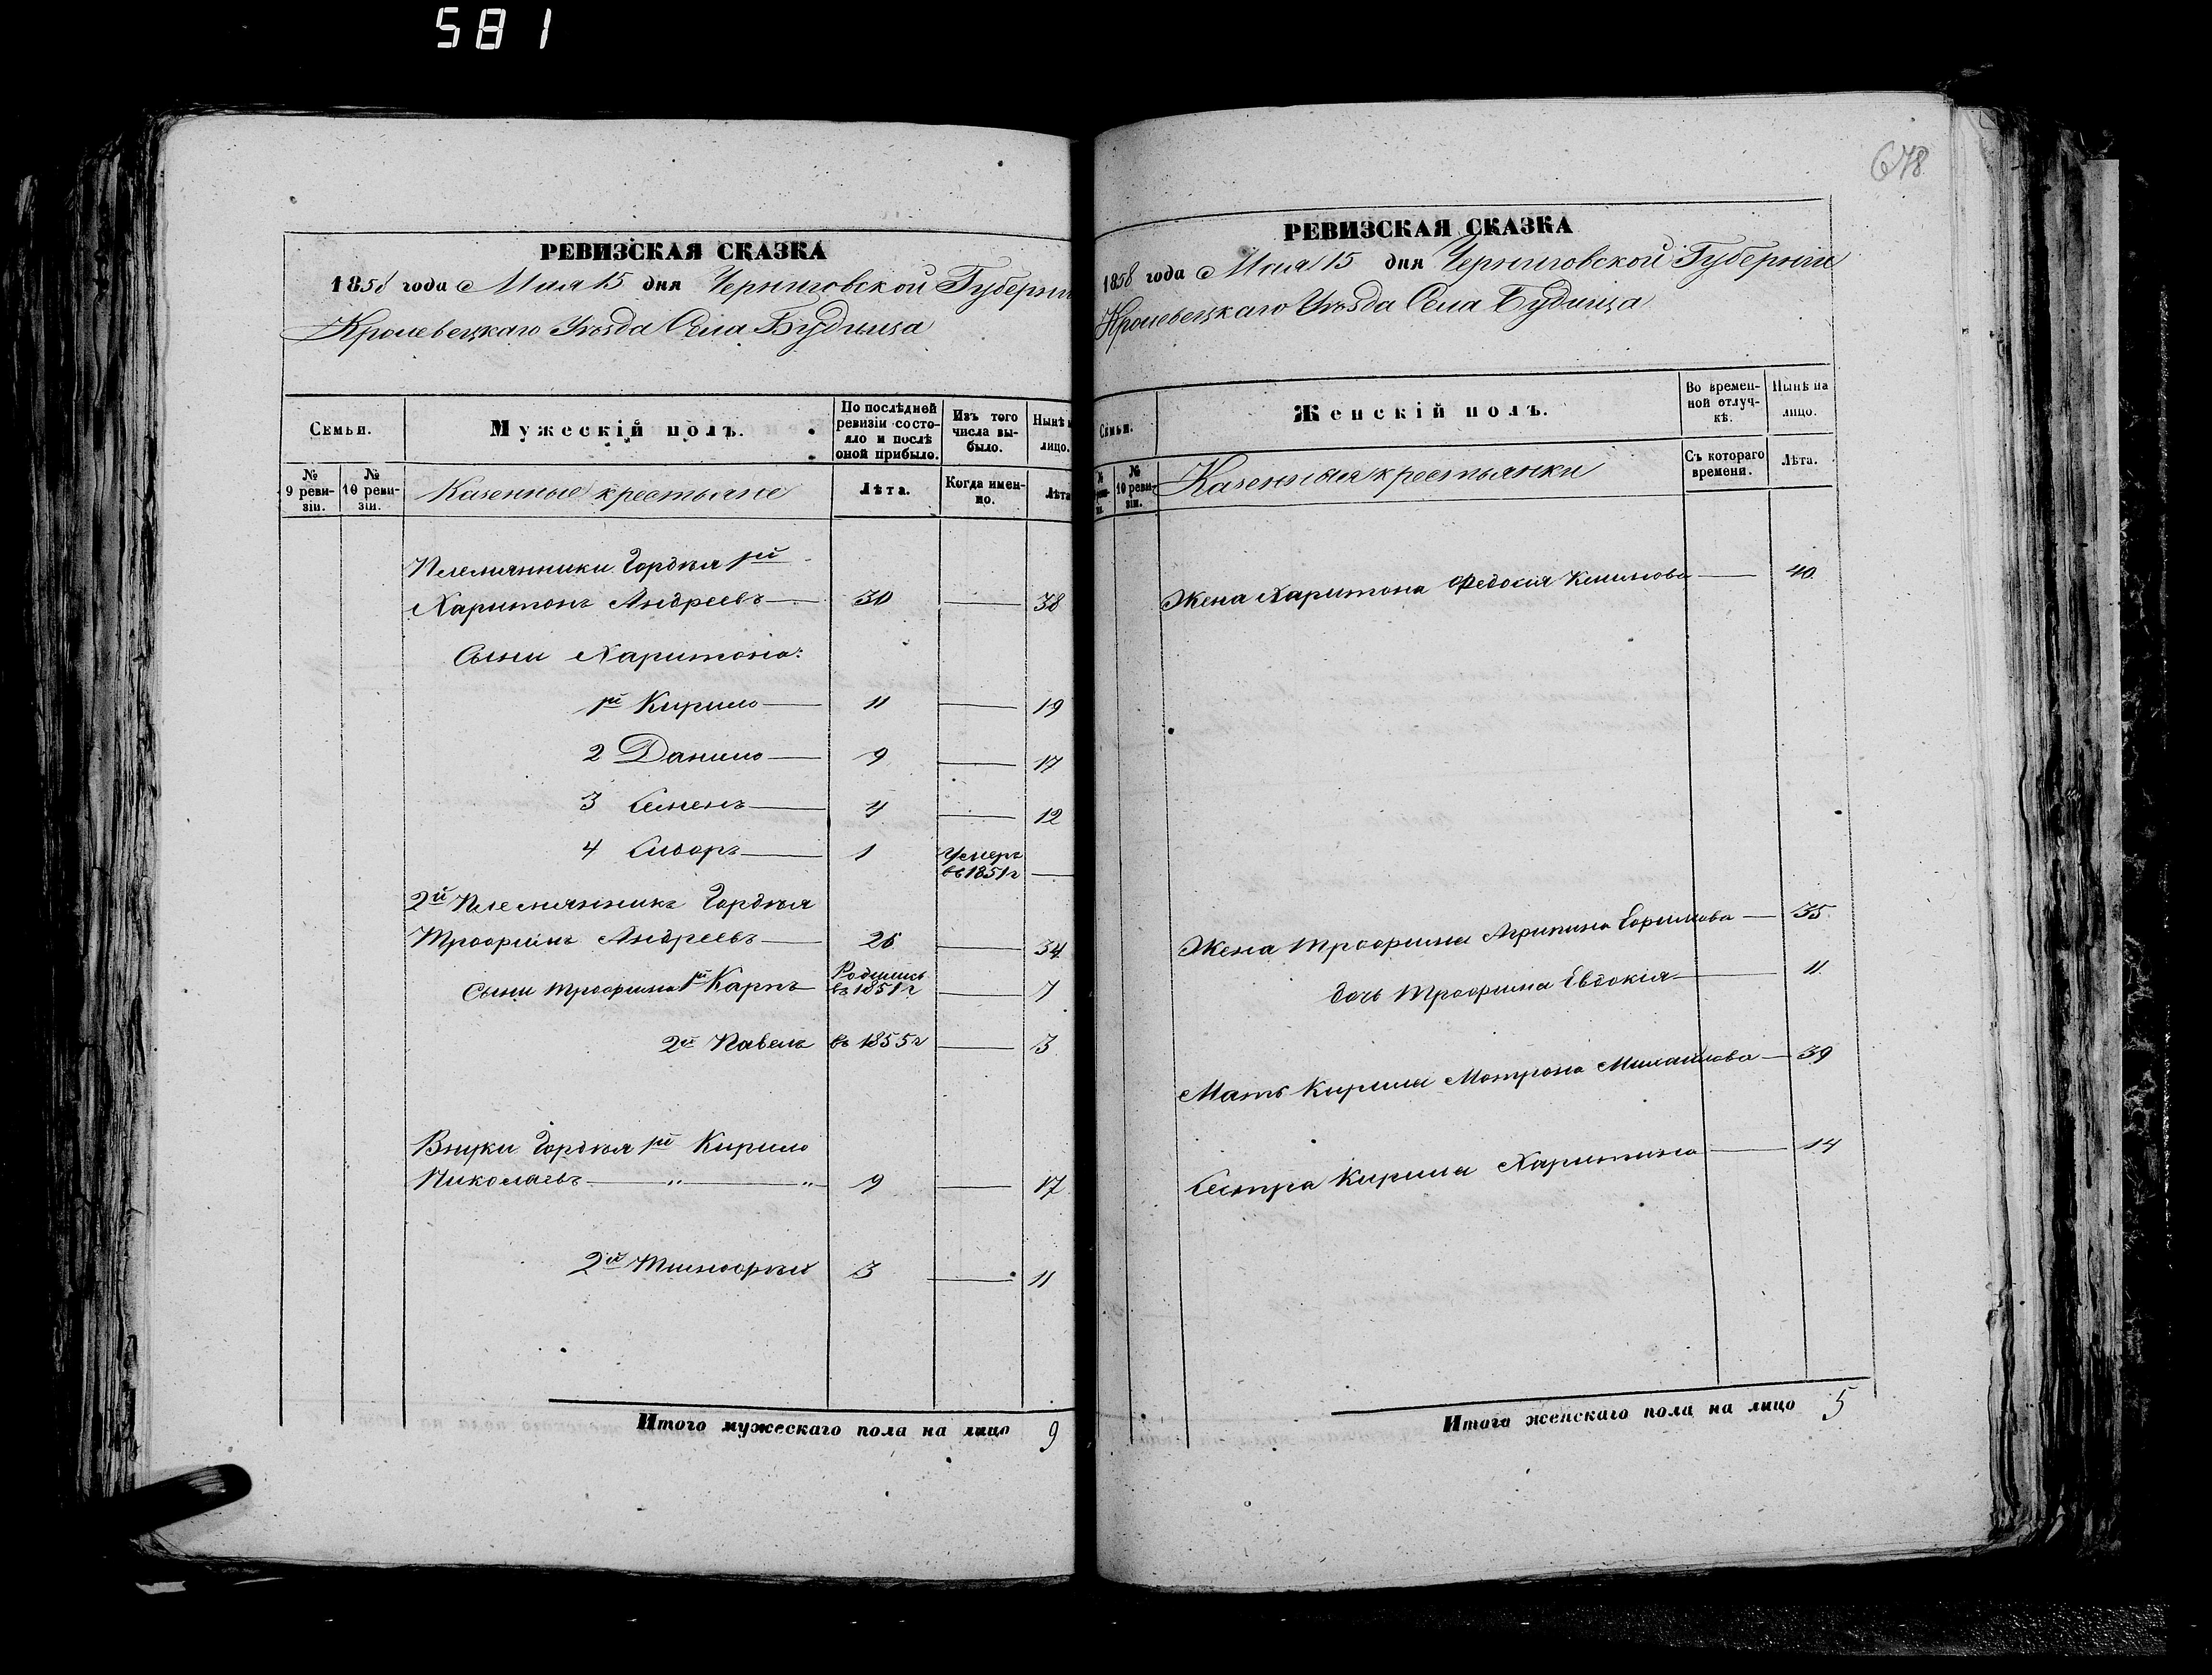 581
678
РЕВИЗСКАЯ СКАЗКА
1858 года Мая 15 дня Черниговской Губерніи
Кролевецкаго Уѣзда Села Будища
Семьи.
Мужескій полъ.
По послѣдней ревизіи состояло и послѣ оной прибыло.
Изъ того числа выбыло.
Нынѣ на лицо.
№ 9 ревизіи.
№ 10 ревизіи.
Казенные крестьяне
Лѣта.
Когда именно.
Лѣта
Племянники Гордѣя 1й
Харитонъ Андреевъ 30 — 38
Сыны Харитона:
1й Кирило 11 — 19
2 Данило 9 — 17
3 Семенъ 4 — 12
4 Сидоръ 1 Умеръ въ 1851 г —
2й Племянникъ Гордѣя
Трофимъ Андреевъ 26 — 34
Сыны Трофима 1й Карпъ Родился въ 1851 г — 7
2й Павелъ въ 1855 г — 3
Внуки Гордѣя 1й Кирило
Николаевъ — „ — „ 9 — 17
2й Тимофѣй 3 — 11
Итого мужескаго пола на лицо 9
РЕВИЗСКАЯ СКАЗКА
1858 года Мая 15 дня Черниговской Губерніи
Кролевецкаго Уѣзда Села Будища
Семьи.
Женскій полъ.
Во временной отлучкѣ.
Нынѣ на лицо.
№ 10 ревизіи.
Казенныя крестьянки
Съ котораго времени.
Лѣта.
Жена Харитона Федосія Климова — 40
Жена Трофима Агрипина Ефимова — 35
дочь Трофима Евдокія — 11
Мать Кирила Мотрона Михайлова — 39
Сестра Кирила Харитина — 14
Итого женскаго пола на лицо 5